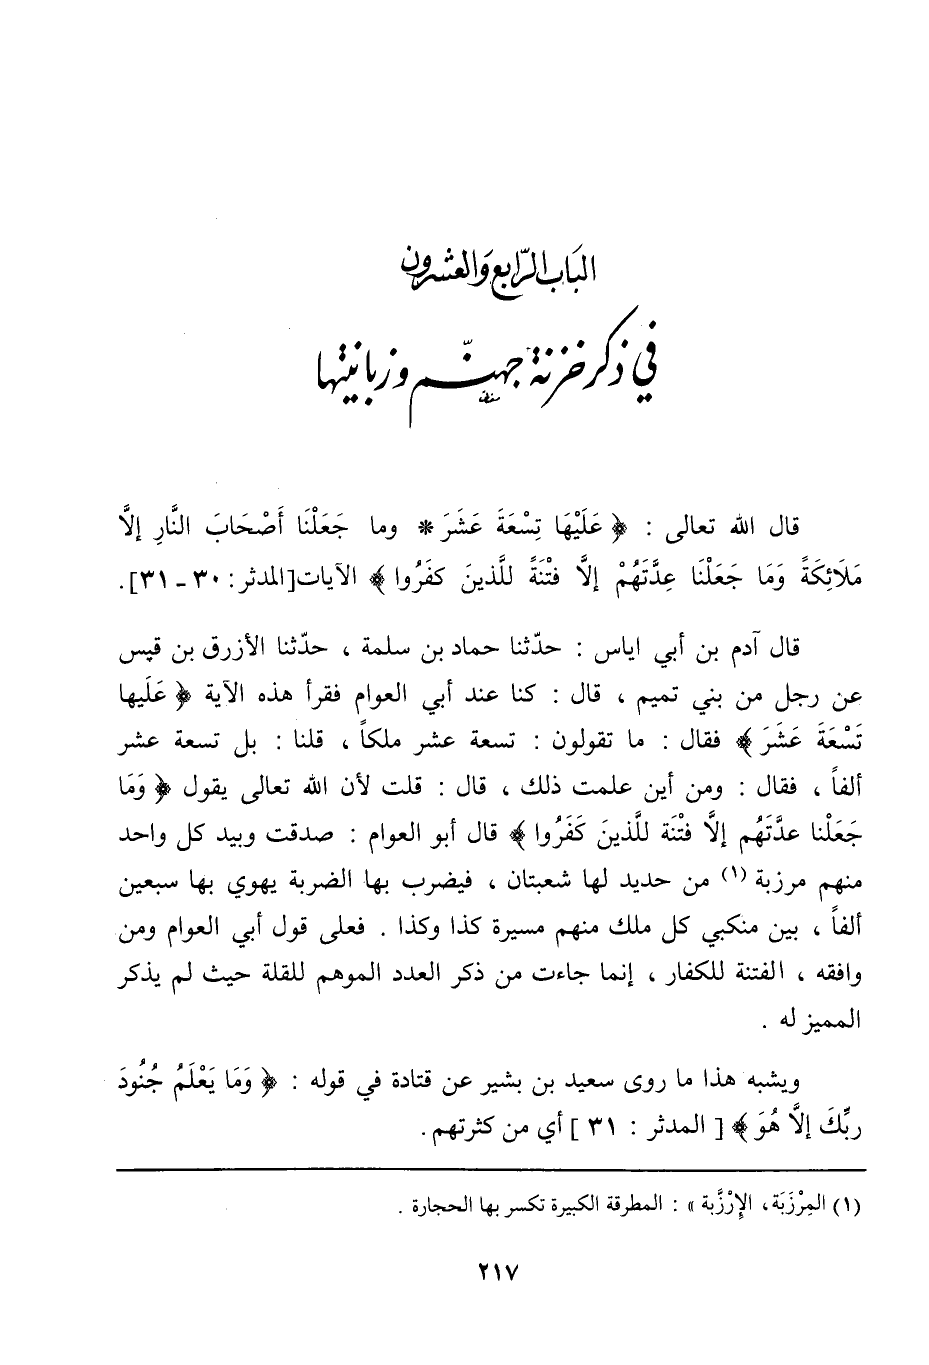 الباب الرّابع وَالعشرون
في ذكر خزنة جهنّم وزبانيتها
قال الله تعالى : ﴿ عَلَيْهَا تِسْعَةَ عَشَرَ * وما جَعَلْنَا أَصْحَابَ النَّارِ إلَّا
مَلَائِكَةً وَمَا جَعَلْنَا عِدَّتَهُمْ إلَّا فتْنَةً للَّذينَ كفَرُوا ﴾ الآيات[المدثر: ٣٠ - ٣١].
قال آدم بن أبي اياس : حدّثنا حماد بن سلمة ، حدّثنا الأزرق بن قيس
عن رجل من بني تميم ، قال : كنا عند أبي العوام فقرأ هذه الآية ﴿ عَلَيها
تَسْعَةَ عَشَرَ ﴾ فقال : ما تقولون : تسعة عشر ملكاً ، قلنا : بل تسعة عشر
ألفاً ، فقال : ومن أين علمت ذلك ، قال : قلت لأن الله تعالى يقول ﴿ وَمَا
جَعَلْنا عدَّتَهُم إلَّا فتْنَة للَّذينَ كَفَرُوا ﴾ قال أبو العوام : صدقت وبيد كل واحد
منهم مرزبة (١) من حديد لها شعبتان ، فيضرب بها الضربة يهوي بها سبعين
ألفاً ، بين منكبي كل ملك منهم مسيرة كذا وكذا . فعلى قول أبي العوام ومن
وافقه ، الفتنة للكفار ، إنما جاءت من ذكر العدد الموهم للقلة حيث لم يذكر
المميز له .
ويشبه هذا ما روى سعيد بن بشير عن قتادة في قوله : ﴿ وَمَا يَعْلَمُ جُنُودَ
ربِّكَ إلَّا هُوَ ﴾ [ المدثر : ٣١ ] أي من كثرتهم .
(١) المِرْزَبَة، الإرْزَّبة » : المطرقة الكبيرة تكسر بها الحجارة .
٢١٧